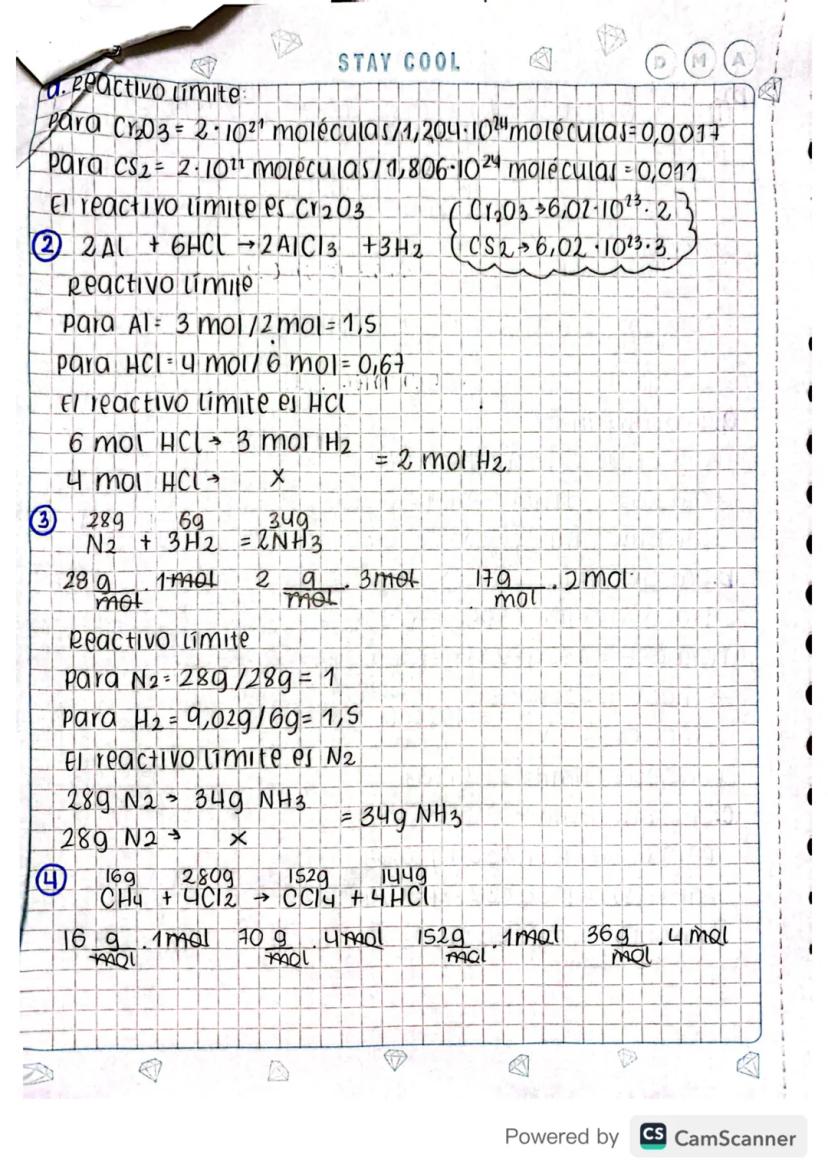 STAY COOL
D M A
d. Reactivo límite:
Para Cr2O3 = 2 · 10²¹ moléculas/1,204·10²⁴ moléculas = 0,0017
Para CS2 = 2·10²² moléculas/1,806·10²⁴ moléculas = 0,011
El reactivo límite es Cr2O3
Cr2O3 → 6,02·10²³·2
CS2 → 6,02 ·10²³·3
② 2Al + 6HCl → 2AlCl3 + 3H2
Reactivo límite
Para Al = 3 mol/2mol = 1,5
Para HCl = 4 mol/6 mol = 0,67
El reactivo límite es HCl
6 mol HCl → 3 mol H2
= 2 mol H2
4 mol HCl → x
③ 28g 6g 34g
N2 + 3H2 = 2NH3
28 g/mol · 1mol 2 g/mol · 3mol 17g/mol · 2mol
Reactivo límite
Para N2 = 28g/28g = 1
Para H2 = 9,02g/6g = 1,5
El reactivo límite es N2
28g N2 → 34g NH3
= 34g NH3
28g N2 → x
④ 16g 280g 152g 144g
CH4 + 4Cl2 → CCl4 + 4HCl
16 g/mol · 1mol 70 g/mol · 4mol 152g/mol · 1mol 36g/mol · 4mol
Powered by CS CamScanner